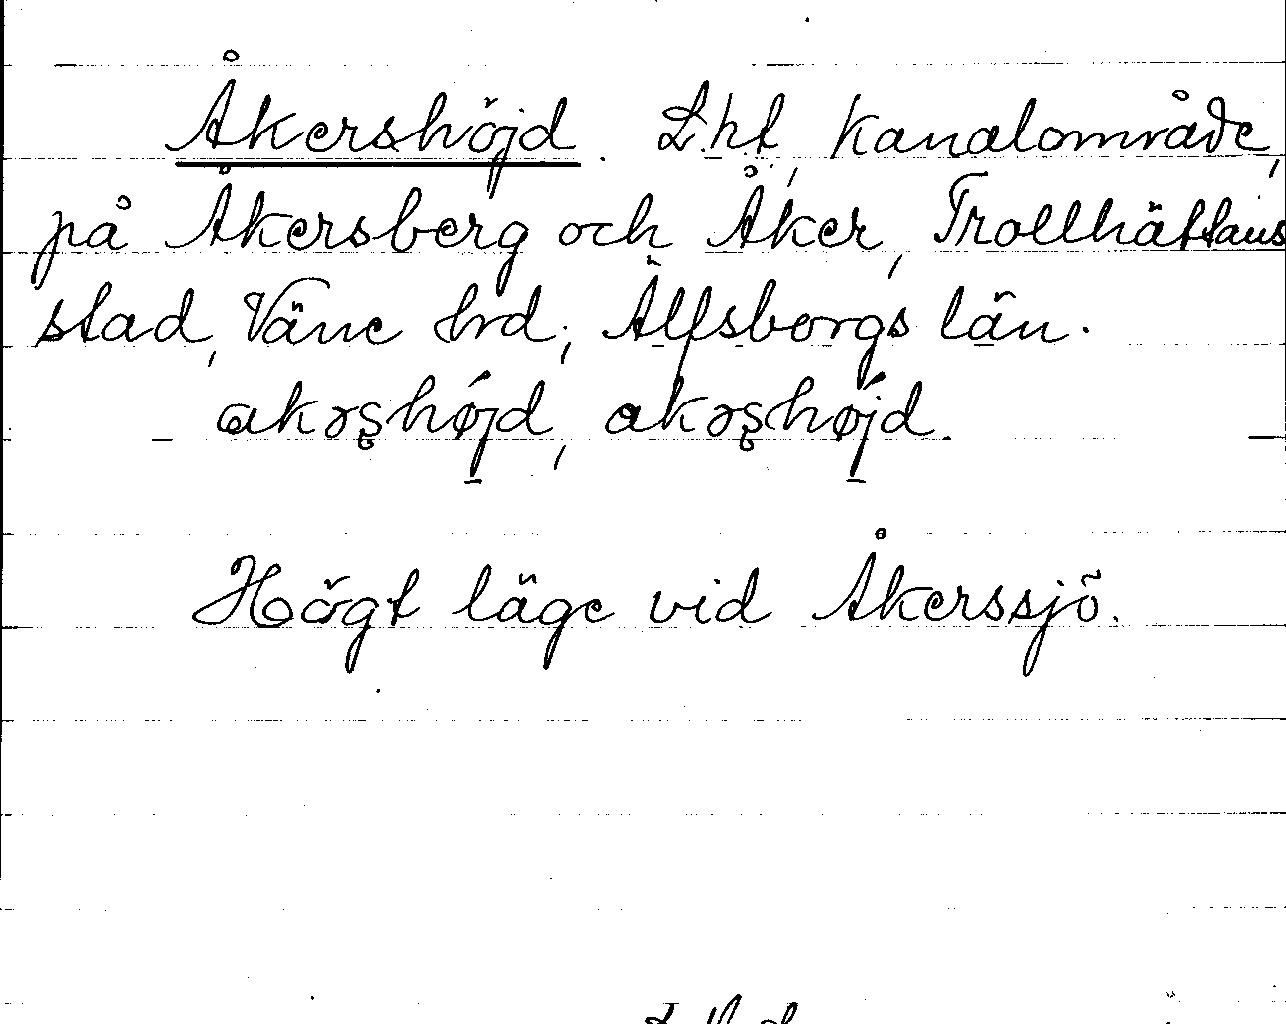 Åkershöjd. Lht, Kanalområde,
på Åkersberg och Åker, Trollhättans
stad, Väne hrd, Älfsborgs län.
akərs̨højd, akərs̨højd.
Högt läge vid Åkerssjö.